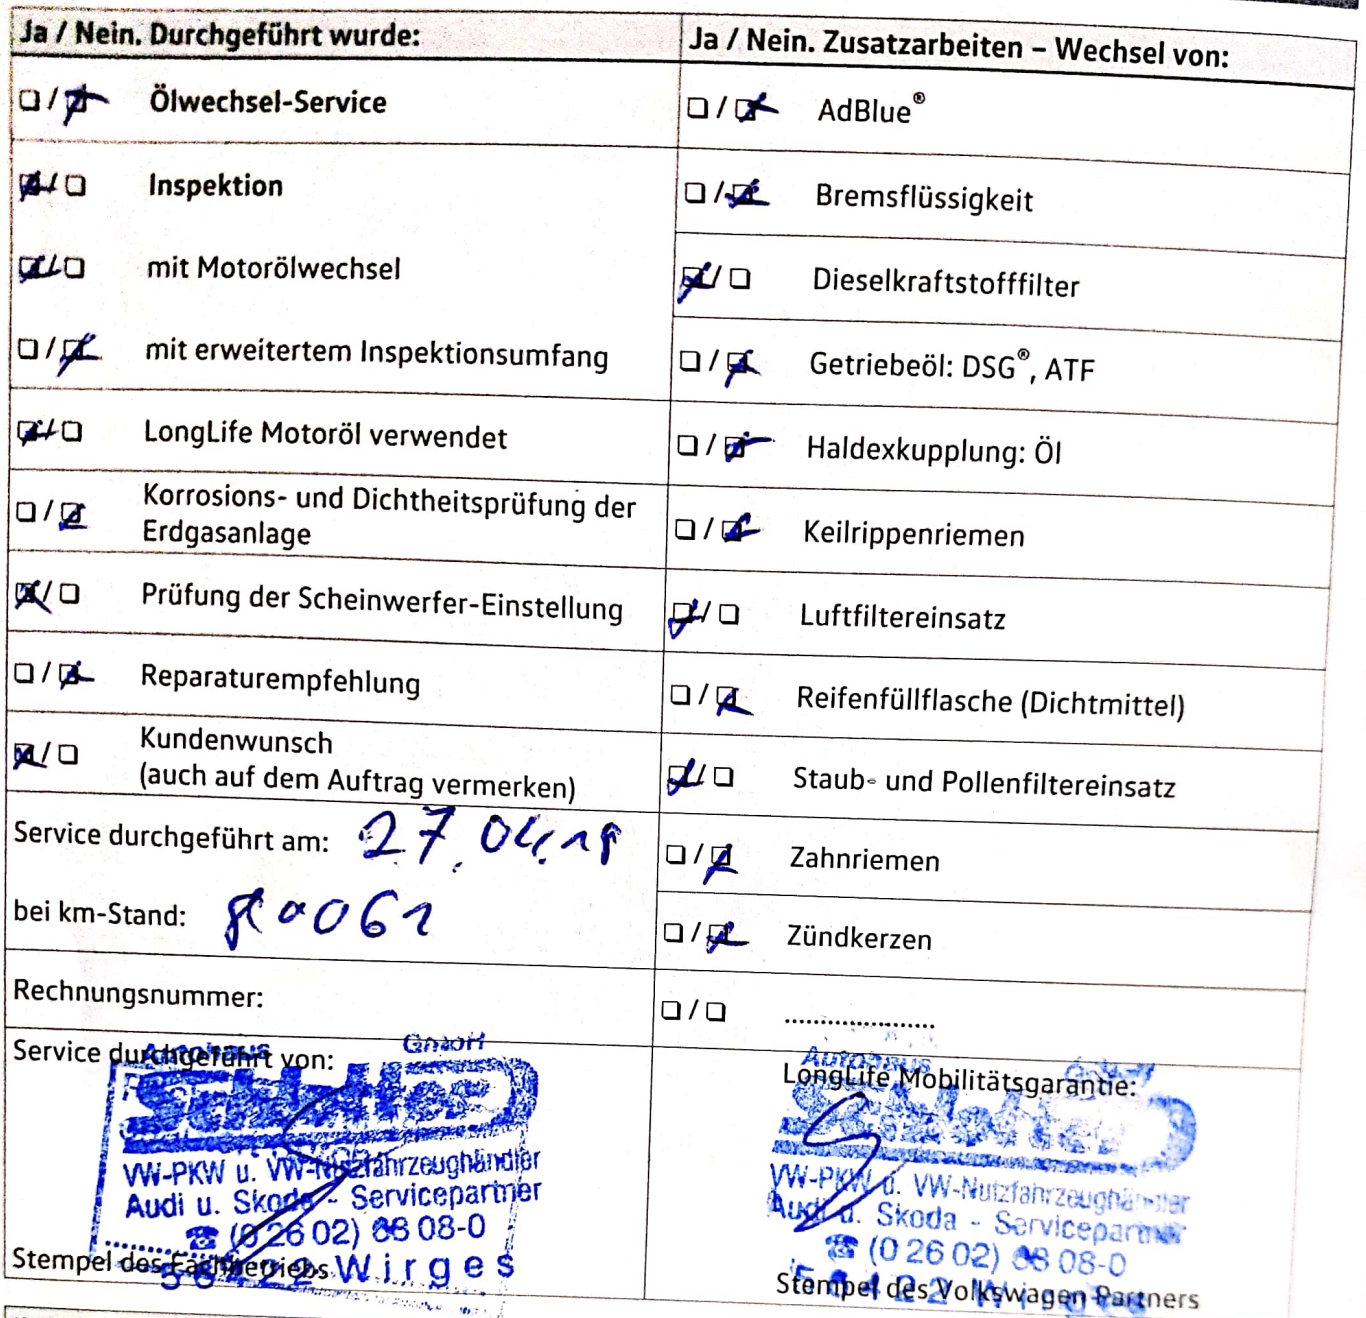 Ja / Nein. Durchgeführt wurde:
Ölwechsel-Service
Inspektion
mit Motorölwechsel
mit erweitertem Inspektionsumfang
LongLife Motoröl verwendet
Korrosions- und Dichtheitsprüfung der
Erdgasanlage
Prüfung der Scheinwerfer-Einstellung
Reparaturempfehlung
Kundenwunsch
(auch auf dem Auftrag vermerken)
Service durchgeführt am: 27.04.19
bei km-Stand:
Rechnungsnummer:
Service durchgeführt von:
Autohaus GmbH
VW-PKW u. VW-Nutzfahrzeughändler
Audi u. Skoda - Servicepartner
☎ (0 26 02) 68 08-0
56422 Wirges
Stempel des Fachbetriebs
Ja / Nein. Zusatzarbeiten – Wechsel von:
AdBlue®
Bremsflüssigkeit
Dieselkraftstofffilter
Getriebeöl: DSG®, ATF
Haldexkupplung: Öl
Keilrippenriemen
Luftfiltereinsatz
Reifenfüllflasche (Dichtmittel)
Staub- und Pollenfiltereinsatz
Zahnriemen
Zündkerzen
....................
Autohaus GmbH
LongLife Mobilitätsgarantie:
VW-PKW u. VW-Nutzfahrzeughändler
Audi u. Skoda - Servicepartner
☎ (0 26 02) 68 08-0
56422 Wirges
Stempel des Volkswagen Partners